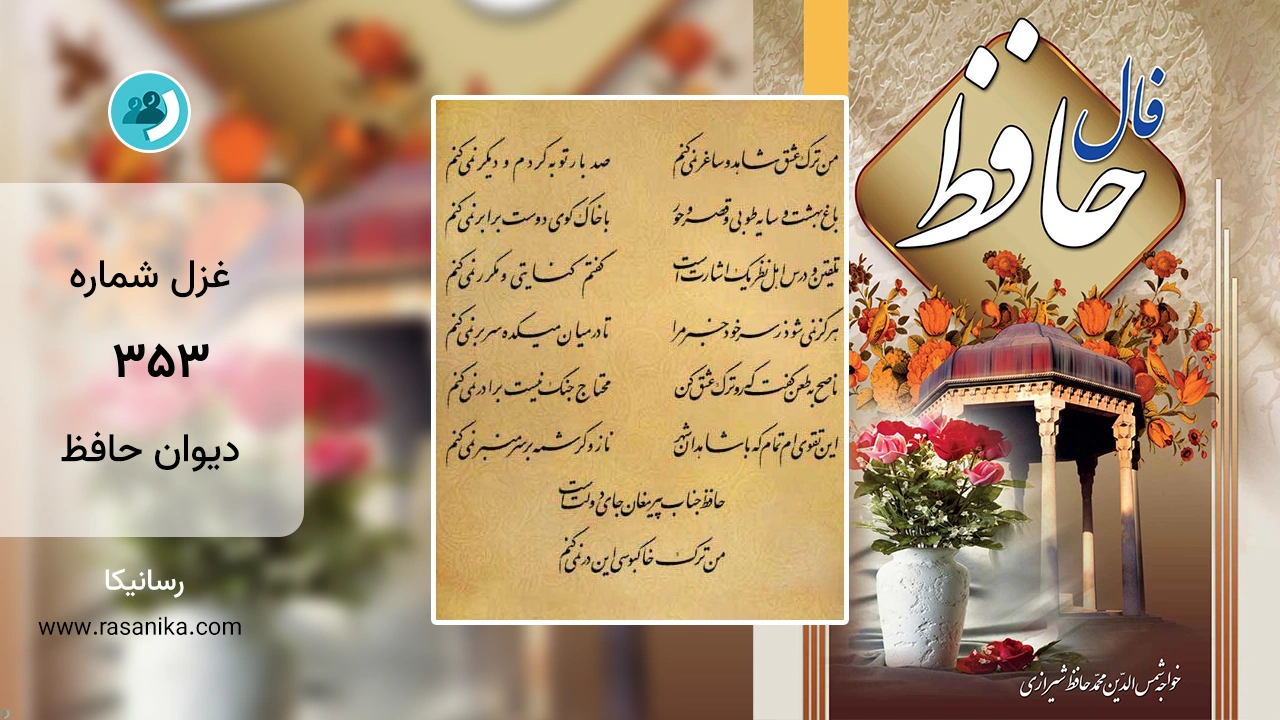 فال
حافظ
من ترک عشق شاهد و ساغر نمی‌کنم صد بار توبه کردم و دیگر نمی‌کنم
باغ بهشت و سایه طوبی و قصر و حور با خاک کوی دوست برابر نمی‌کنم
تلقین و درس اهل نظر یک اشارت است گفتم کنایتی و مکرر نمی‌کنم
هرگز نمی شود ز سر خود خبر مرا تا در میان میکده سر بر نمی‌کنم
ناصح به طعن گفت که رو ترک عشق کن محتاج جنگ نیست برادر نمی‌کنم
این تقوی ام تمام که با شاهدان شهر ناز و کرشمه بر سر منبر نمی‌کنم
حافظ جناب پیر مغان جای دولت است
من ترک خاکبوسی این در نمی‌کنم
غزل شماره
۳۵۳
دیوان حافظ
رسانیکا
www.rasanika.com
خواجه شمس الدّین محمّد حافظ شیرازی